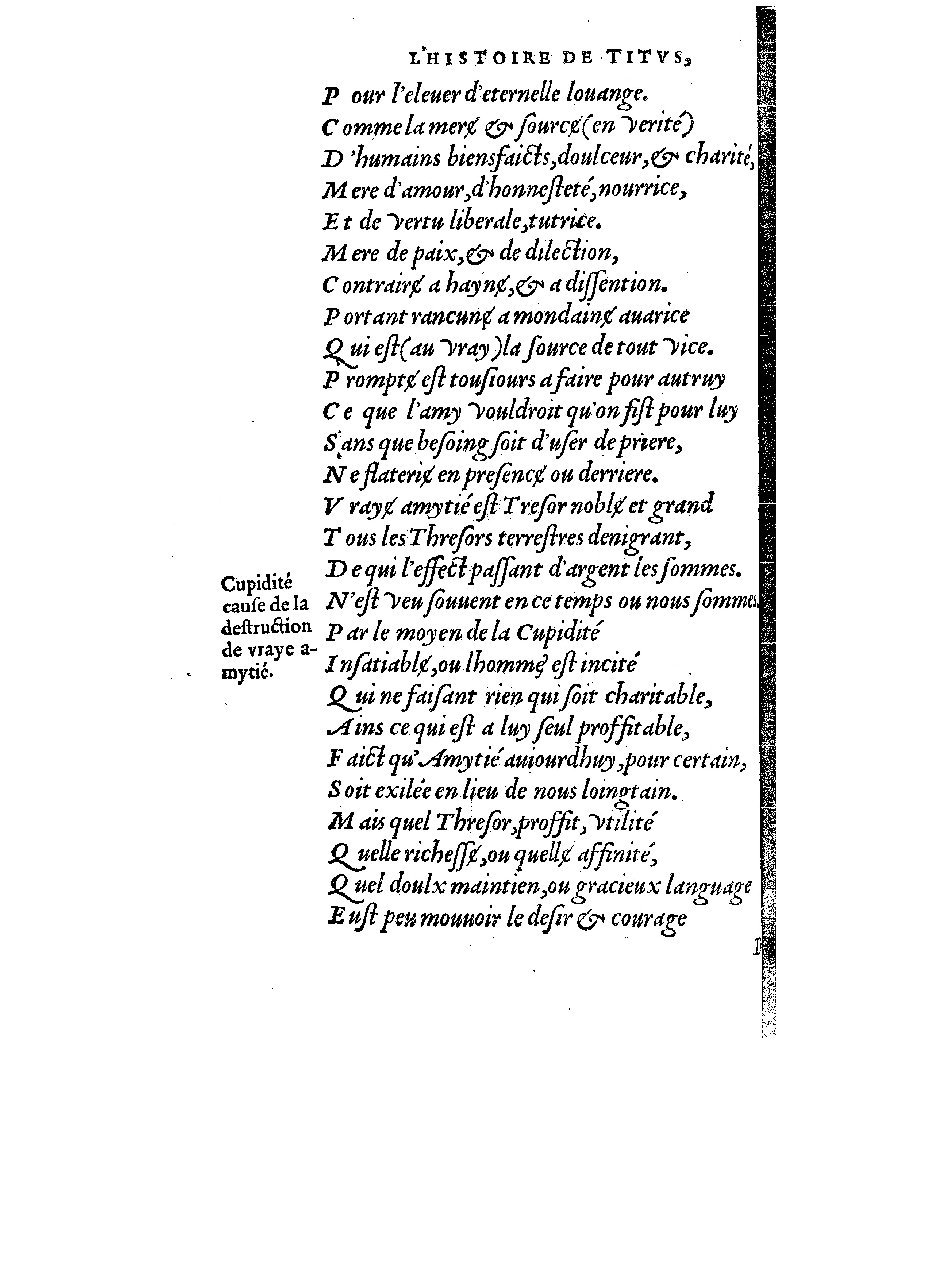 L'HISTOIRE DE TITVS,
Pour l'eleuer d'eternelle louange.
Comme la merɇ & ſourcɇ (en verité)
D'humains biensfaicts, doulceur, & charité,
Mere d'amour, d'honneſteté, nourrice,
Et de vertu liberale, tutrice.
Mere de paix, & de dilection,
Contrairɇ a haynɇ, & a diſſention.
Portant rancunɇ a mondainɇ auarice
Qui eſt (au vray) la ſource de tout vice.
Promptɇ eſt touſiours a faire pour autruy
Ce que l'amy vouldroit qu'on fiſt pour luy
Sans que beſoing ſoit d'uſer de priere,
Ne flateriɇ en preſencɇ ou derriere.
Vrayɇ amytié eſt Treſor noblɇ et grand
Tous les Threſors terreſtres denigrant,
De qui l'effect paſſant d'argent les ſommes.
N'eſt veu ſouuent en ce temps ou nous ſommes.
Par le moyen de la Cupidité
Inſatiablɇ, ou lhommɇ eſt incité
Qui ne faiſant rien qui ſoit charitable,
Ains ce qui eſt a luy ſeul proffitable,
Faict qu'Amytié auiourdhuy, pour certain,
Soit exilée en lieu de nous loingtain.
Mais quel Threſor, proffit, vtilité
Quelle richeſſɇ, ou quellɇ affinité,
Quel doulx maintien, ou gracieux language
Euſt peu mouuoir le deſir & courage
Cupidité
cauſe de la
deſtruction
de vraye a-
mytié.